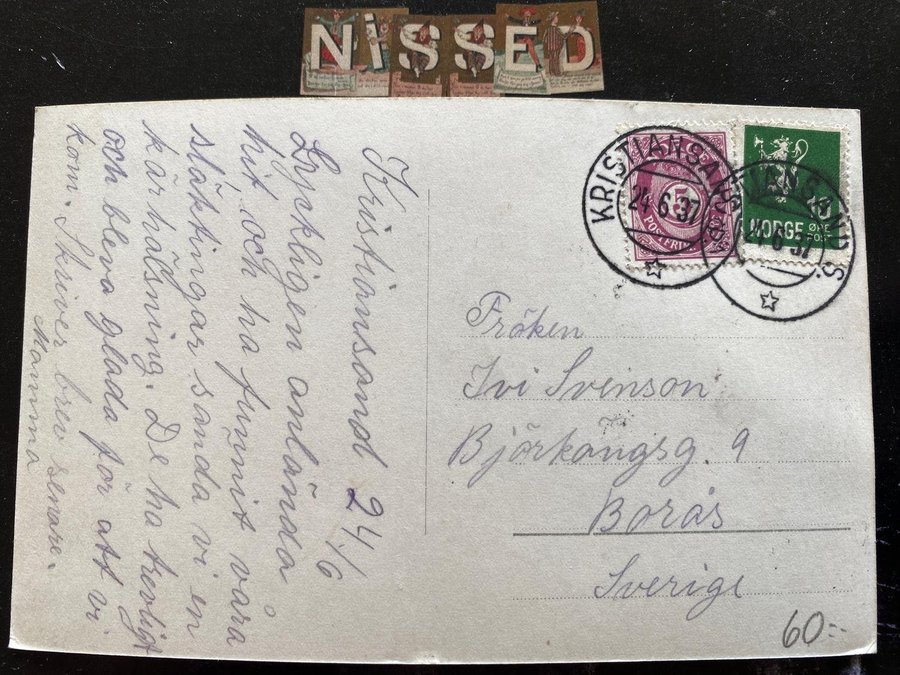 NISSED
Kristiansand 24/6
Lyckligen anlända
hit och ha funnit våra
släktingar sända vi en
kär hälsning. De ha trevligt
och bleva glada för att vi
kom. Skriver brev senare.
Mamma
KRISTIANSAND S.
24 6 37
NORGE
5
POSTFRIM
KRISTIANSAND S.
24 6 37
NORGE
ØRE
POST
Fröken
Ivi Svenson
Björkängsg. 9
Borås
Sverige
60:-